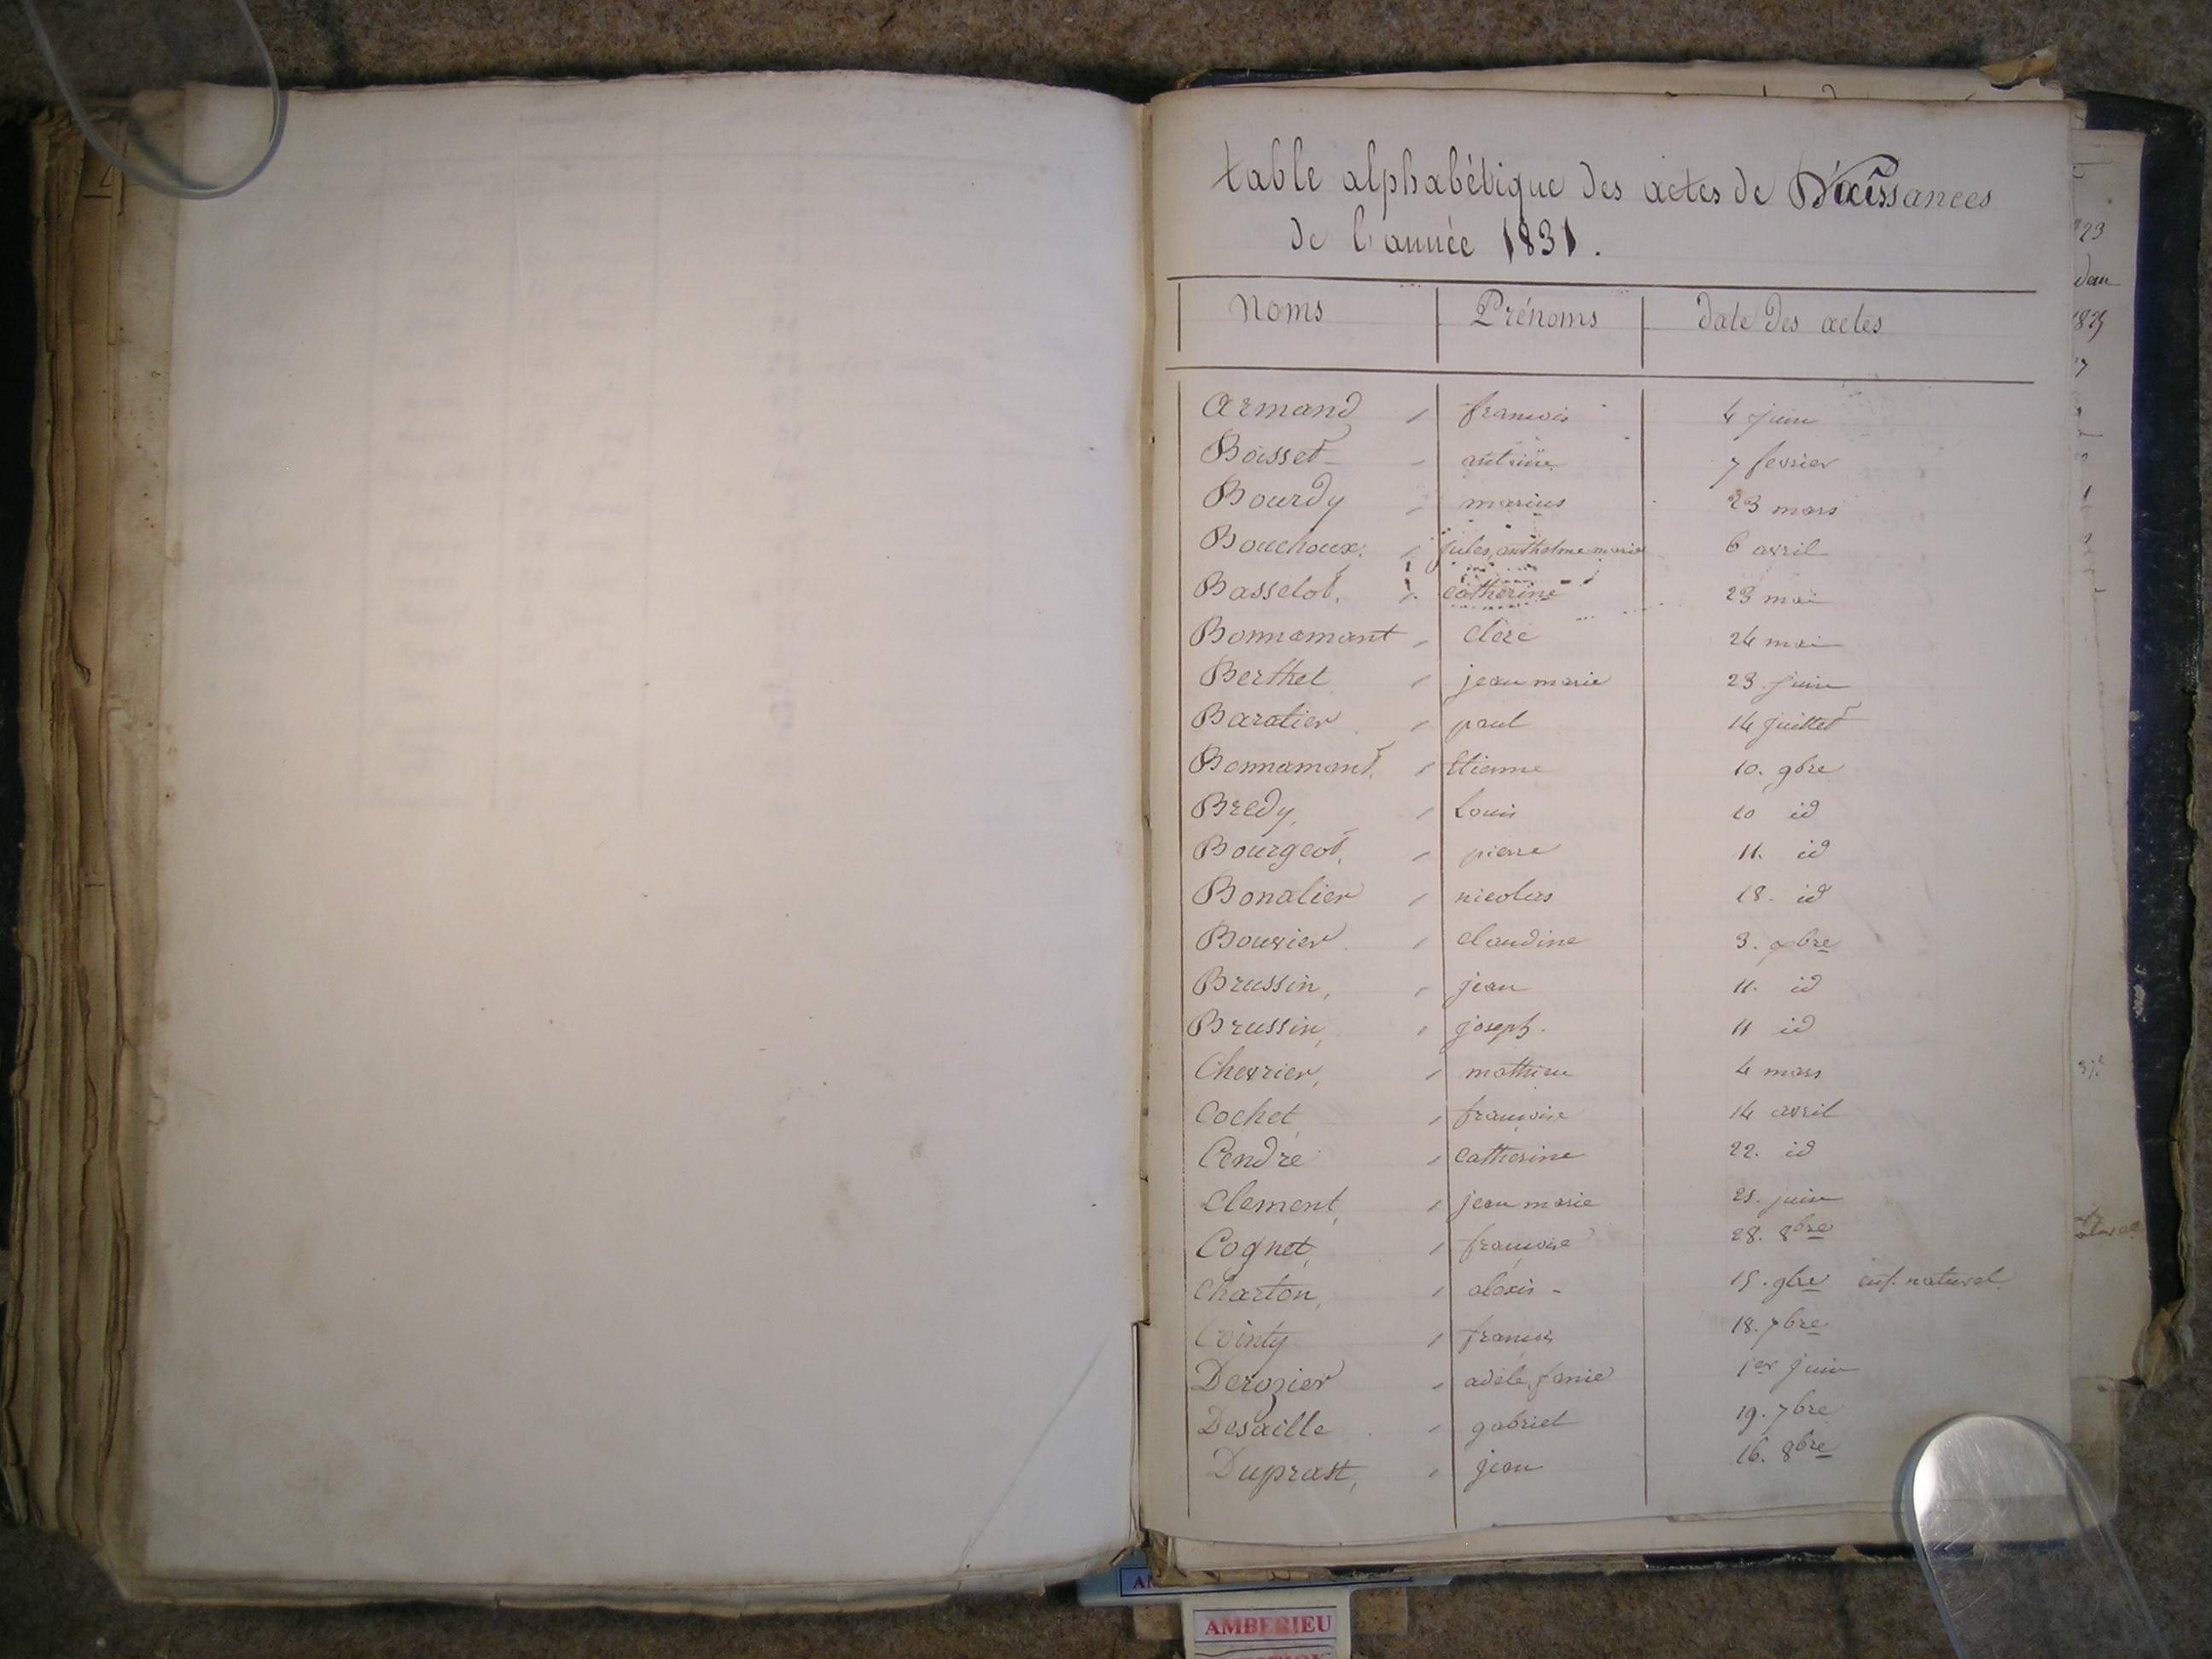 table alphabétique des actes de Naissances
de l'année 1831.
Noms Prénoms date des actes
Armand francois 4 juin
Boisset antoine 7 fevrier
Bourdy marius 23 mars
Bouchoux, jules, anthelme marie 6 avril
Basselot, catherine 23 mai
Bonnamant Clere 24 mai
Berthet jean marie 23 juin
Baratier paul 14 juillet
Bonnamant, Etienne 10. 9bre
Bredy, Louis 10 id
Bourgeot, pierre 11. id
Bonalier nicolas 18. id
Bouvier claudine 3. xbre
Brussin, jean 11. id
Brussin, joseph. 11 id
Chevrier, mathieu 4 mars
Cochet, francoise 14 avril
Cendre Catherine 22. id
Clement, jean marie 21. juin
Cognet, francoise 28. 8bre
Charton, alexis - 15. 9bre enf. naturel
Cointy francois 18. 7bre
Derozier adele, fanie 1er juin
Desaille gabriel 19. 7bre
Duprast, jean 16. 8bre
AMBERIEU